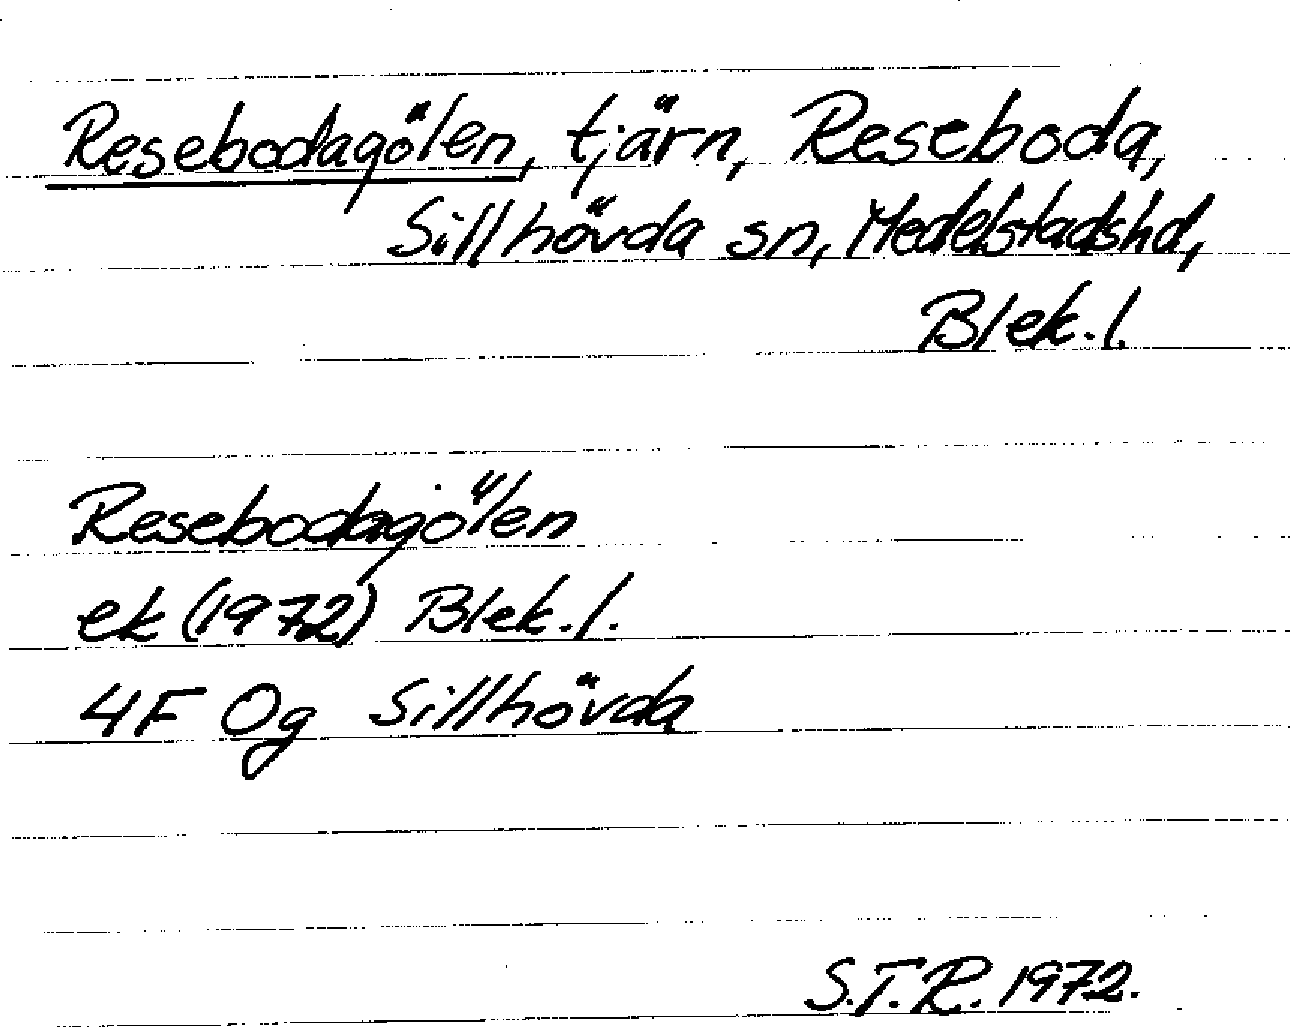 Resebodagölen, tjärn, Reseboda,
Sillhövda sn, Medelstadshd,
Blek. l.
Resebodagölen
ek (1972) Blek. l.
4F Og Sillhövda
S.T.R. 1972.